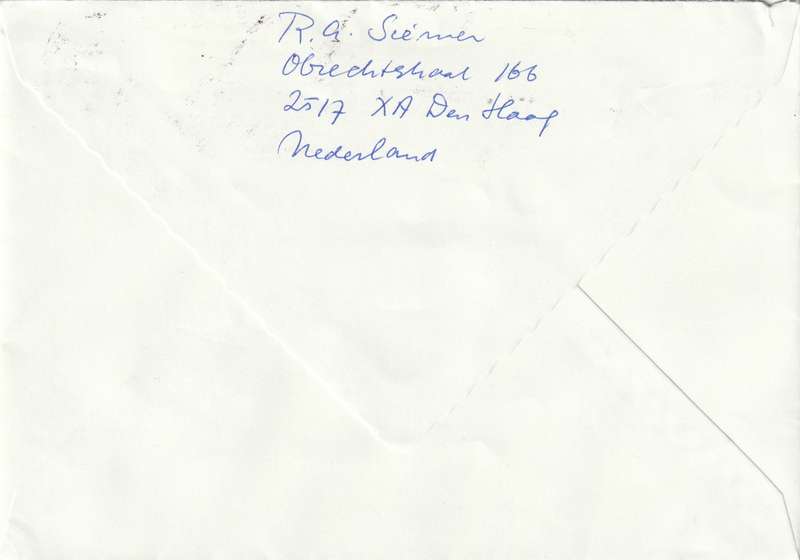 R.A. Siemer
Obrechtstraat 166
2517 XA Den Haag
Nederland